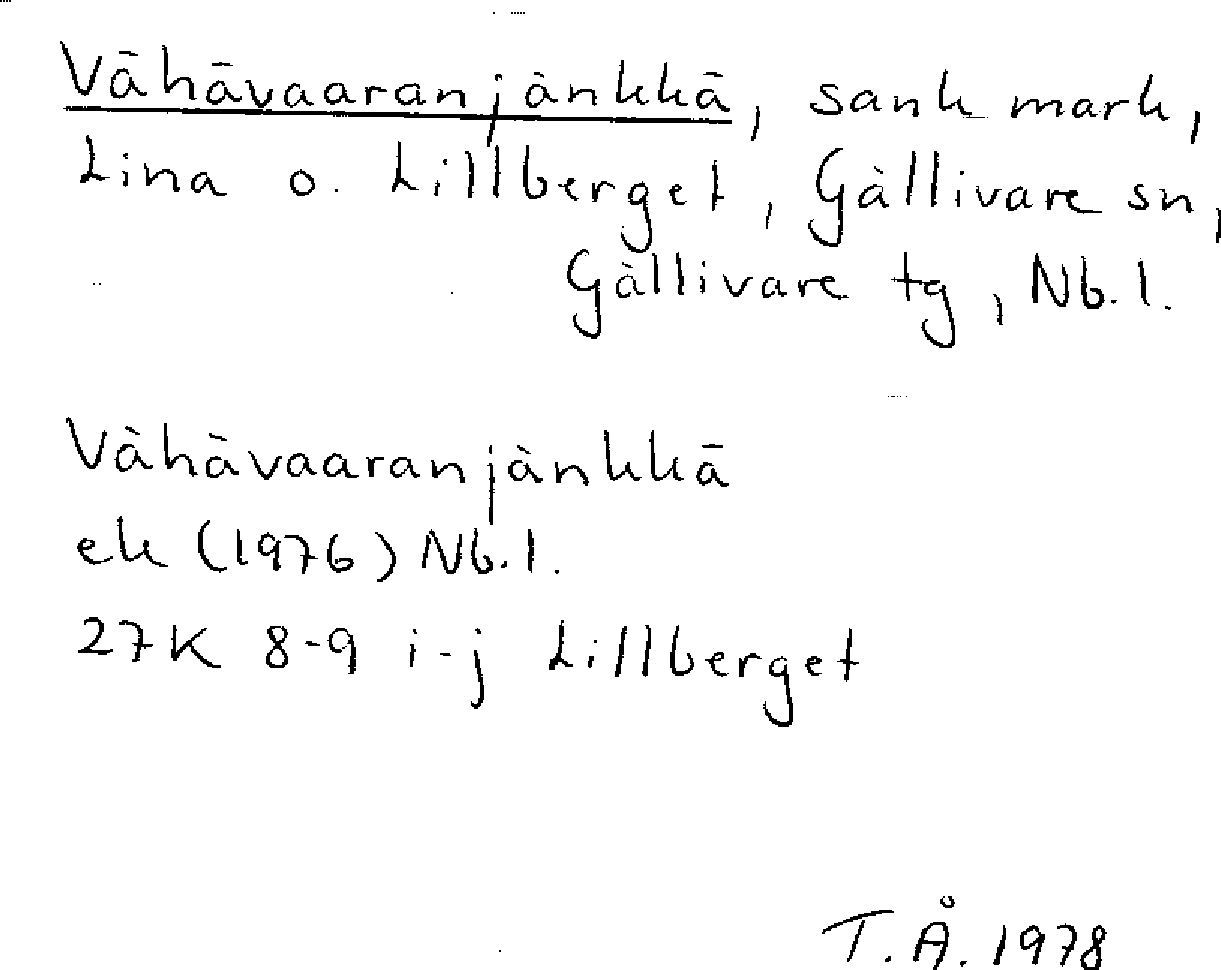 Vähävaaranjänkkä, sank mark,
Lina o. Lillberget, Gällivare sn,
Gällivare tg, Nb.l.
Vähävaaranjänkkä
ek (1976) Nb.l.
27K 8-9 i-j Lillberget
T.Å. 1978